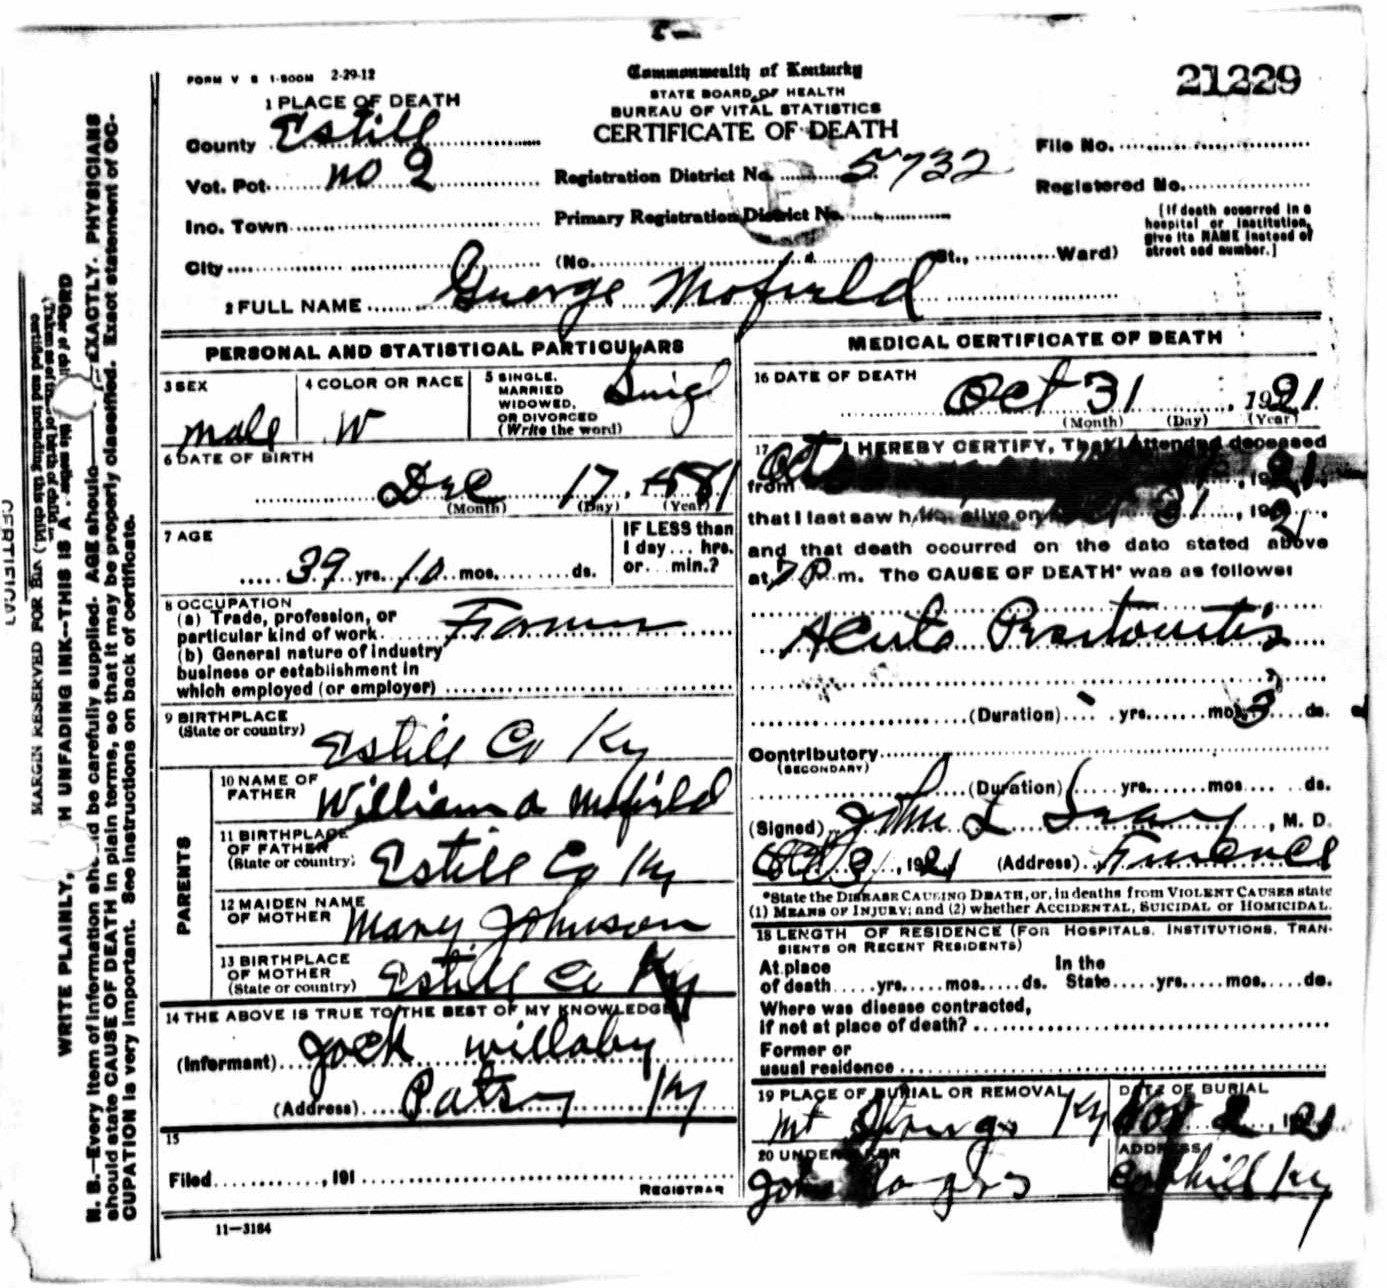 FORM V S 1-500M 2-29-12
Commonwealth of Kentucky
21229
STATE BOARD OF HEALTH
BUREAU OF VITAL STATISTICS
CERTIFICATE OF DEATH
1 PLACE OF DEATH
County Estill
Vot. Pct. no 2
Inc. Town
City
Registration District No. 5732
Primary Registration District No.
(No. St., Ward)
File No.
Registered No.
[If death occurred in a
hospital or institution,
give its NAME instead of
street and number.]
2 FULL NAME George Mofield
PERSONAL AND STATISTICAL PARTICULARS
3 SEX
male
4 COLOR OR RACE
W
5 SINGLE,
MARRIED
WIDOWED,
OR DIVORCED
(Write the word)
Singl
6 DATE OF BIRTH
Dec 17, 1881
(Month) (Day) (Year)
7 AGE
39 yrs. 10 mos. ds.
IF LESS than
1 day ... hrs.
or ... min.?
8 OCCUPATION
(a) Trade, profession, or
particular kind of work Farmer
(b) General nature of industry
business or establishment in
which employed (or employer)
9 BIRTHPLACE
(State or country)
Estill Co Ky
PARENTS
10 NAME OF
FATHER
William a Mofield
11 BIRTHPLACE
OF FATHER
(State or country)
Estill Co Ky
12 MAIDEN NAME
OF MOTHER
Mary Johnson
13 BIRTHPLACE
OF MOTHER
(State or country)
Estill Co Ky
14 THE ABOVE IS TRUE TO THE BEST OF MY KNOWLEDGE
(Informant) Jack willaby
(Address) Patsy Ky
15
Filed , 191
REGISTRAR
11—3184
MEDICAL CERTIFICATE OF DEATH
16 DATE OF DEATH
Oct 31, 1921
(Month) (Day) (Year)
17 I HEREBY CERTIFY, That I attended deceased
from Oct , 1921
that I last saw him alive on Oct 31, 1921,
and that death occurred on the date stated above
at 7 P m. The CAUSE OF DEATH* was as follows:
Acute Peritonitis
(Duration) yrs. mos. 3 ds.
Contributory
(SECONDARY)
(Duration) yrs. mos. ds.
(Signed) John L , M. D.
Oct 31, 1921 (Address) Furnace
*State the DISEASE CAUSING DEATH, or, in deaths from VIOLENT CAUSES state
(1) MEANS OF INJURY; and (2) whether ACCIDENTAL, SUICIDAL or HOMICIDAL.
18 LENGTH OF RESIDENCE (FOR HOSPITALS, INSTITUTIONS, TRAN-
SIENTS OR RECENT RESIDENTS)
At place
of death yrs. mos. ds.
In the
State yrs. mos. ds.
Where was disease contracted,
if not at place of death?
Former or
usual residence
19 PLACE OF BURIAL OR REMOVAL
Mt Springs Ky
DATE OF BURIAL
Nov 2, 1921
20 UNDERTAKER
John
ADDRESS
Ky
MARGIN RESERVED FOR
WRITE PLAINLY, H UNFADING INK--THIS IS A
N. B.—Every item of information should be carefully supplied. AGE should EXACTLY. PHYSICIANS
should state CAUSE OF DEATH in plain terms, so that it may be properly classified. Exact statement of OC-
CUPATION is very important. See instructions on back of certificate.